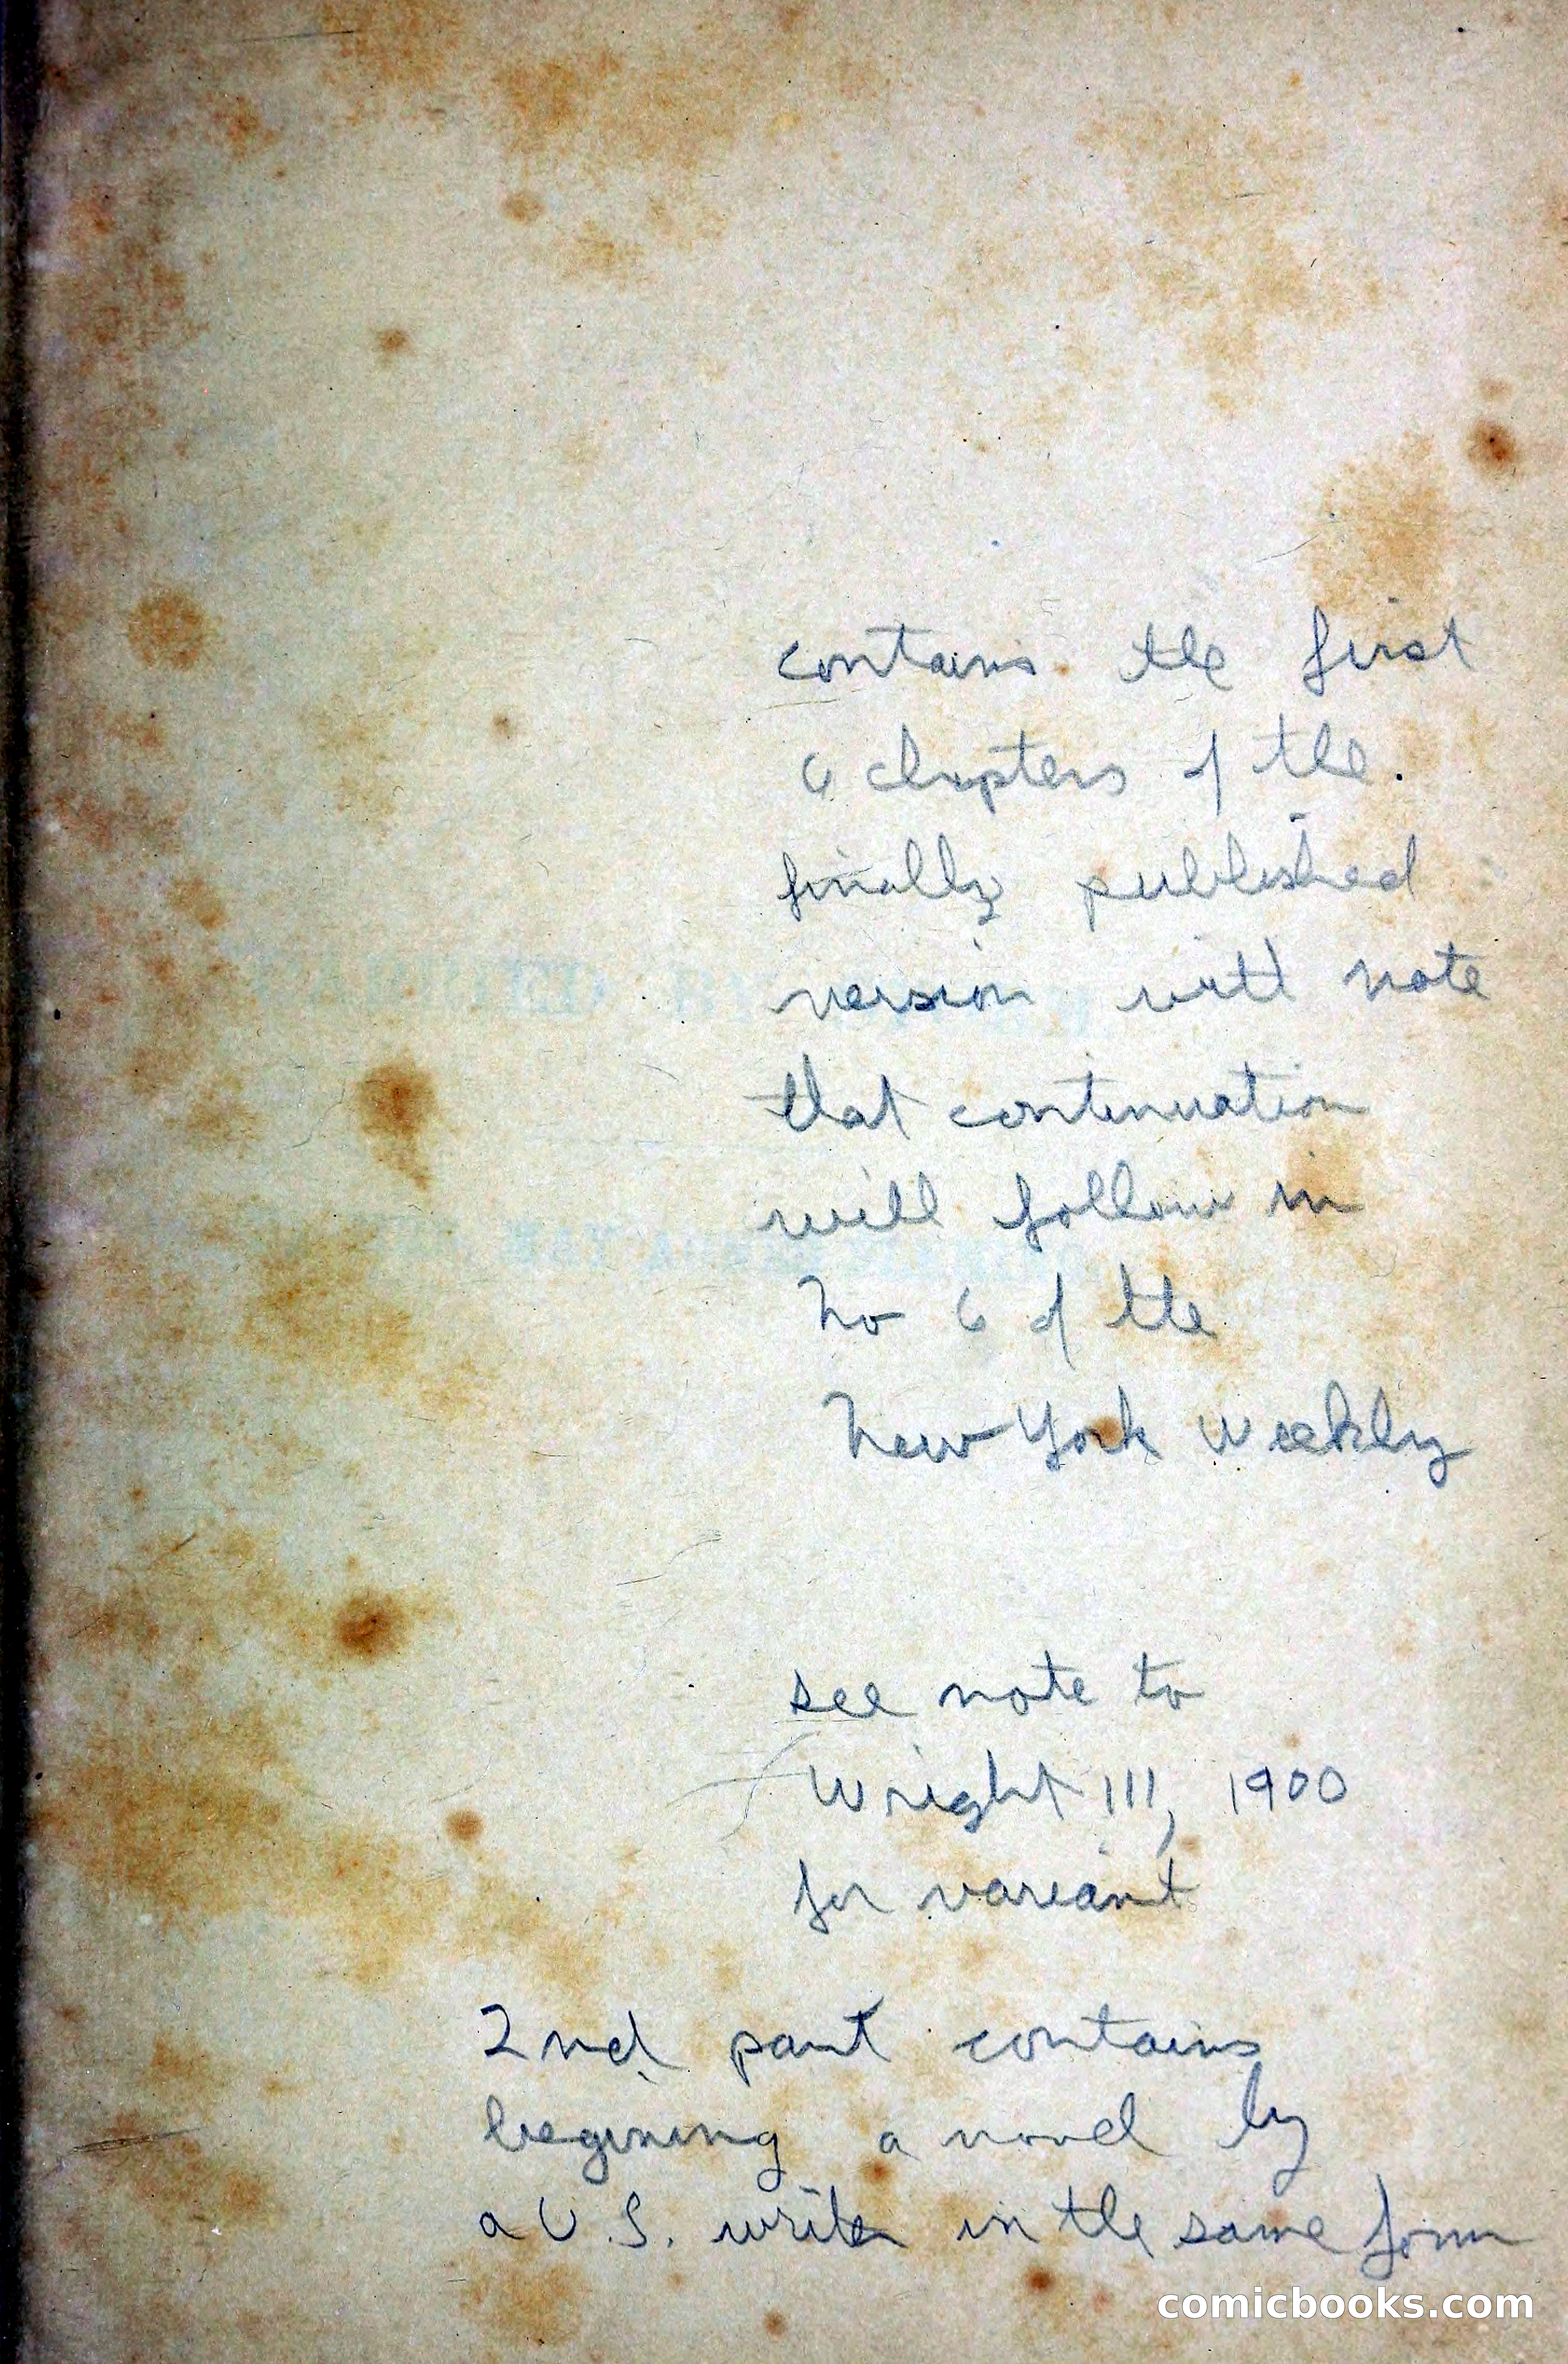 contains the first
6 chapters of the
finally published
version with note
that continuation
will follow in
No 6 of the
New York Weekly
see note to
Wright III, 1900
for variant
2nd part contains
begining a novel by
a U.S. writer in the same form
comicbooks.com